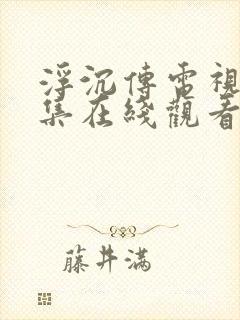 浮沉傳電視
集在綫觀看
藤井滿